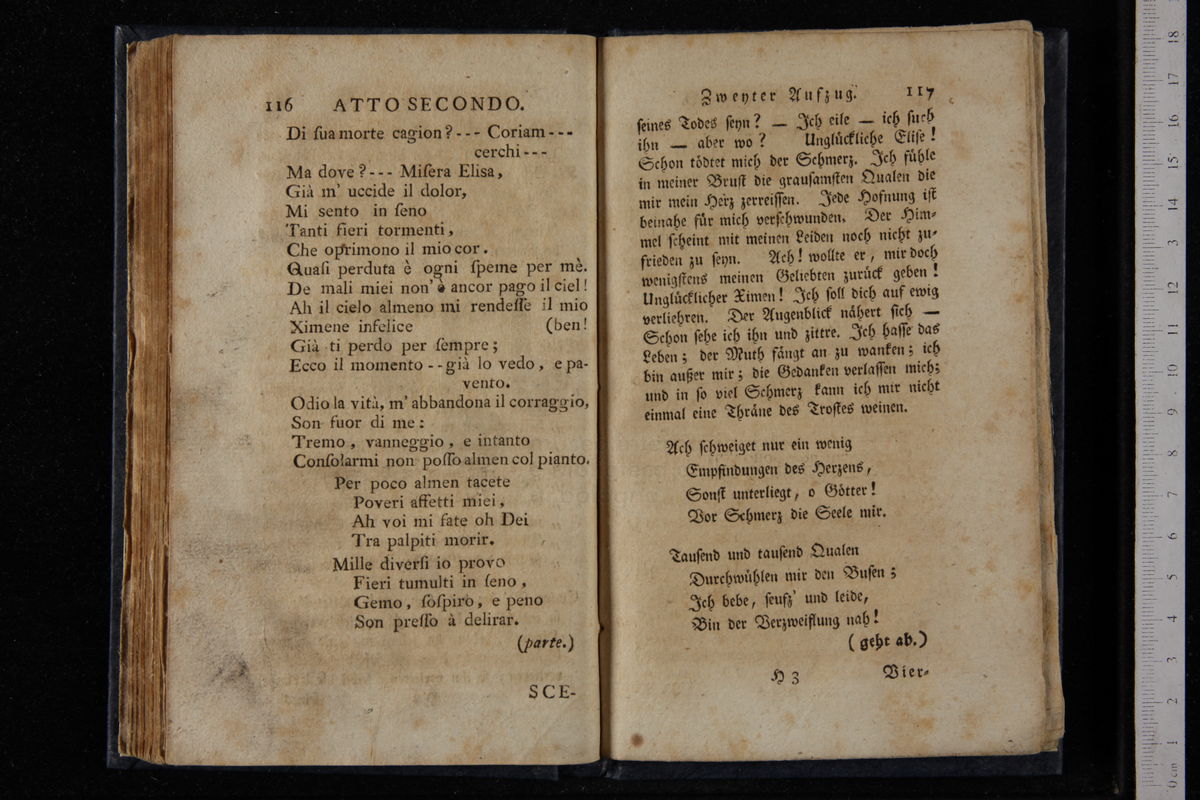 116 ATTO SECONDO.
Di ſua morte cagion? --- Coriam ---
cerchi ---
Ma dove? --- Miſera Elisa,
Già m' uccide il dolor,
Mi sento in ſeno
Tanti fieri tormenti,
Che oprimono il mio cor.
Quaſi perduta è ogni ſpeme per mè.
De mali miei non' è ancor pago il ciel!
Ah il cielo almeno mi rendeſſe il mio
Ximene infelice (ben!
Già ti perdo per ſempre;
Ecco il momento -- già lo vedo, e pa-
vento.
Odio la vità, m' abbandona il corraggio,
Son fuor di me:
Tremo, vanneggio, e intanto
Conſolarmi non poſſo almen col pianto.
Per poco almen tacete
Poveri affetti miei,
Ah voi mi fate oh Dei
Tra palpiti morir.
Mille diverſi io provo
Fieri tumulti in ſeno,
Gemo, ſoſpirò, e peno
Son preſſo à delirar.
(parte.)
SCE-
Zweyter Aufzug. 117
ſeines Todes ſeyn? — Ich eile — ich ſuch
ihn — aber wo? Unglückliche Eliſe!
Schon tödtet mich der Schmerz. Ich fühle
in meiner Bruſt die grauſamſten Qualen die
mir mein Herz zerreiſſen. Jede Hofnung iſt
beinahe für mich verſchwunden. Der Him⸗
mel ſcheint mit meinen Leiden noch nicht zu⸗
frieden zu ſeyn. Ach! wollte er, mir doch
wenigſtens meinen Geliebten zurück geben!
Unglücklicher Ximen! Ich ſoll dich auf ewig
verliehren. Der Augenblick nähert ſich —
Schon ſehe ich ihn und zittre. Ich haſſe das
Leben; der Muth fängt an zu wanken; ich
bin außer mir; die Gedanken verlaſſen mich;
und in ſo viel Schmerz kann ich mir nicht
einmal eine Thräne des Troſtes weinen.
Ach ſchweiget nur ein wenig
Empfindungen des Herzens,
Sonſt unterliegt, o Götter!
Vor Schmerz die Seele mir.
Tauſend und tauſend Qualen
Durchwühlen mir den Buſen;
Ich bebe, ſeufz' und leide,
Bin der Verzweiflung nah!
(geht ab.)
H 3 Vier⸗
0 cm 1 2 3 4 5 6 7 8 9 10 11 12 13 14 15 16 17 18